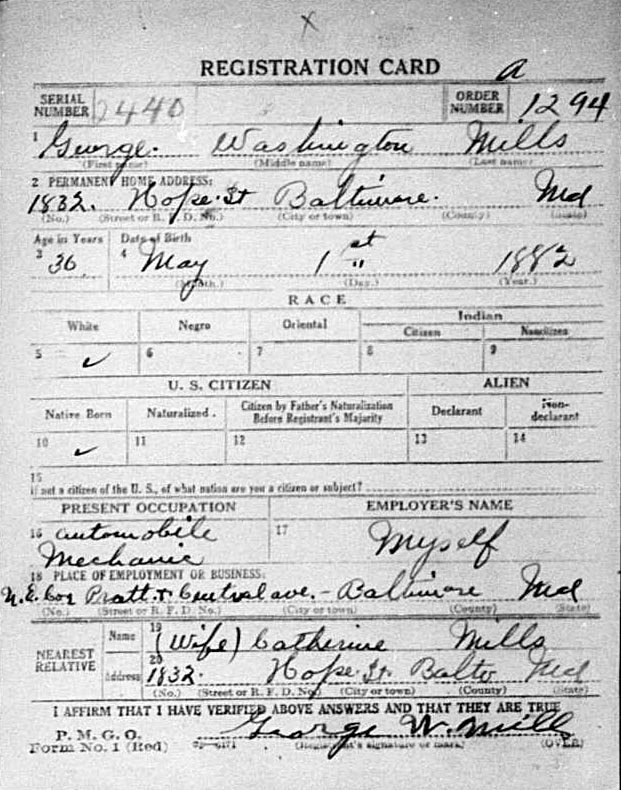 X
REGISTRATION CARD A
SERIAL NUMBER 2440 ORDER NUMBER 1294
1 George. Washington Mills
(First name) (Middle name) (Last name)
2 PERMANENT HOME ADDRESS:
1832. Hope. St Baltimore. Md
(No.) (Street or R. F. D. No.) (City or town) (County) (State)
Age in Years Date of Birth
3 36 4 May 1st 1882
(Month.) (Day.) (Year.)
RACE
White Negro Oriental Indian
Citizen Noncitizen
5 ✓ 6 7 8 9
U. S. CITIZEN ALIEN
Native Born Naturalized. Citizen by Father's Naturalization Before Registrant's Majority Declarant Non-declarant
10 ✓ 11 12 13 14
15
If not a citizen of the U. S., of what nation are you a citizen or subject?
PRESENT OCCUPATION EMPLOYER'S NAME
16 automobile 17 Myself
Mechanic
18 PLACE OF EMPLOYMENT OR BUSINESS:
N.E. Cor Pratt & Central ave. - Baltimore Md
(No.) (Street or R. F. D. No.) (City or town) (County) (State)
NEAREST RELATIVE Name 19 (Wife) Catherine Mills
Address 20 1832. Hope St. Balto Md
(No.) (Street or R. F. D. No.) (City or town) (County) (State)
I AFFIRM THAT I HAVE VERIFIED ABOVE ANSWERS AND THAT THEY ARE TRUE
P. M. G. O.
Form No. 1 (Red) George W. Mills
(Registrant's signature or mark) (OVER)